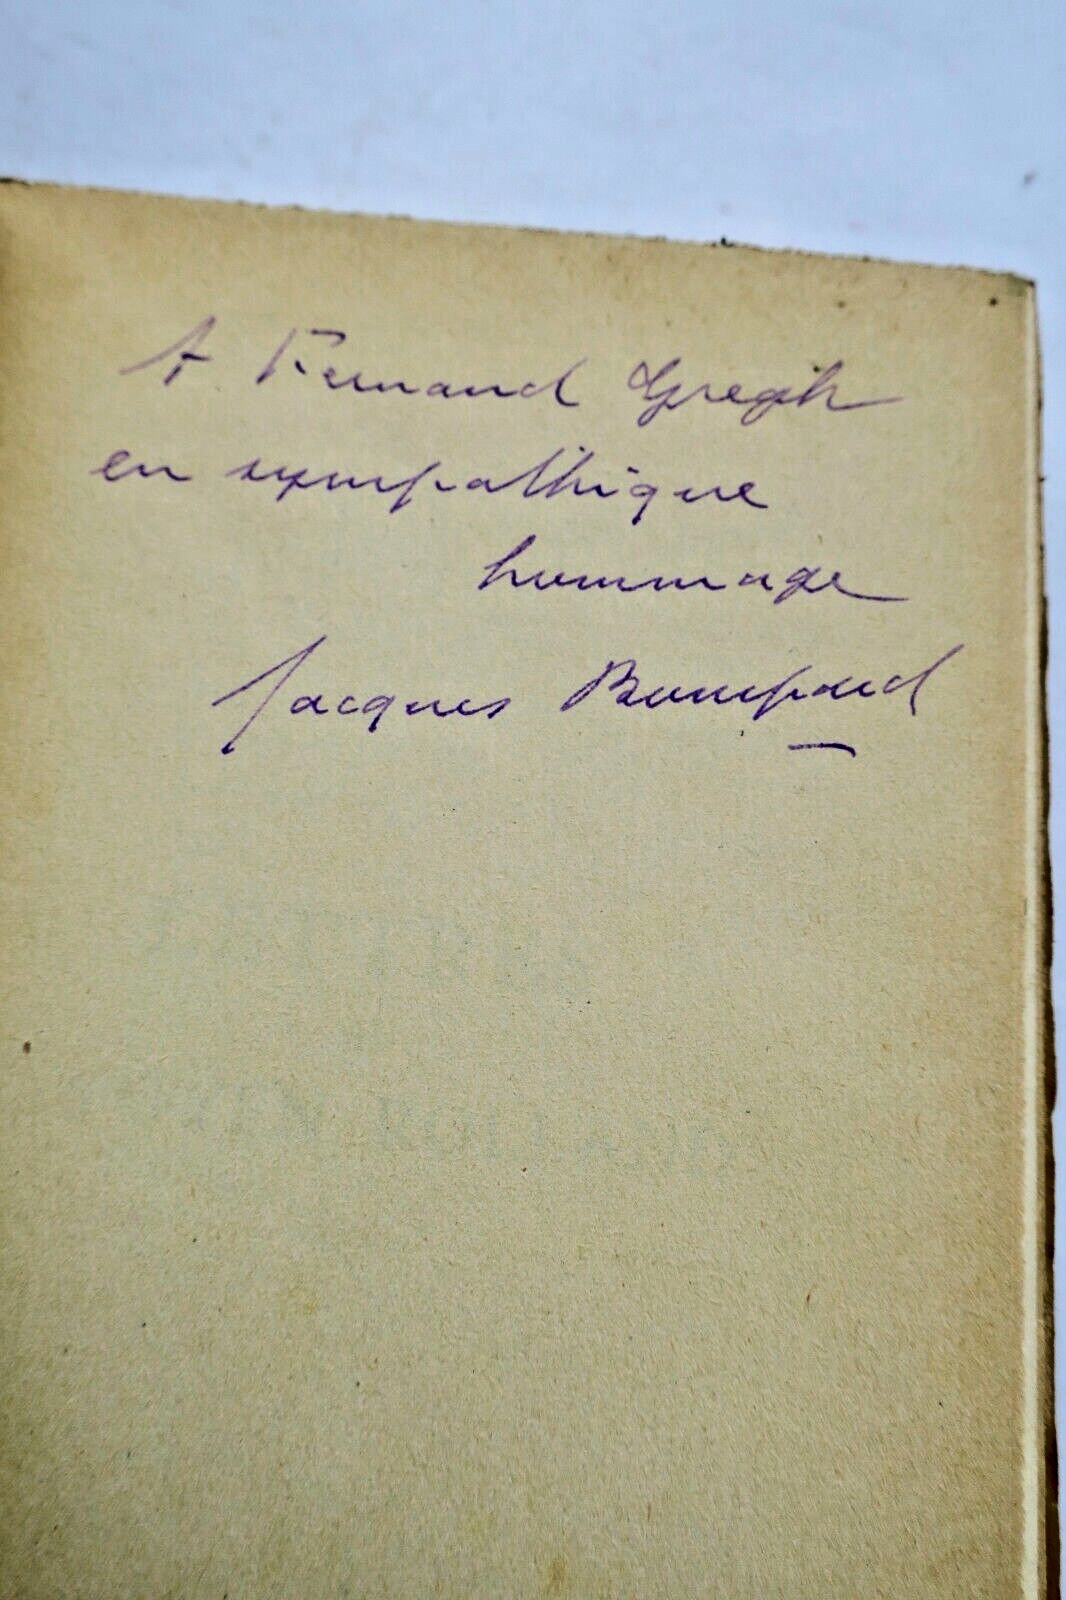 A Fernand Gregh
en sympathique
hommage
Jacques Bompard